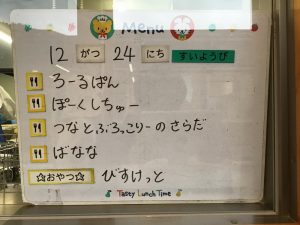 Menu
12 がつ 24 にち すいようび
ろーるぱん
ぽーくしちゅー
つなとぶろっこりーのさらだ
ばなな
☆おやつ☆ びすけっと
Tasty Lunch Time